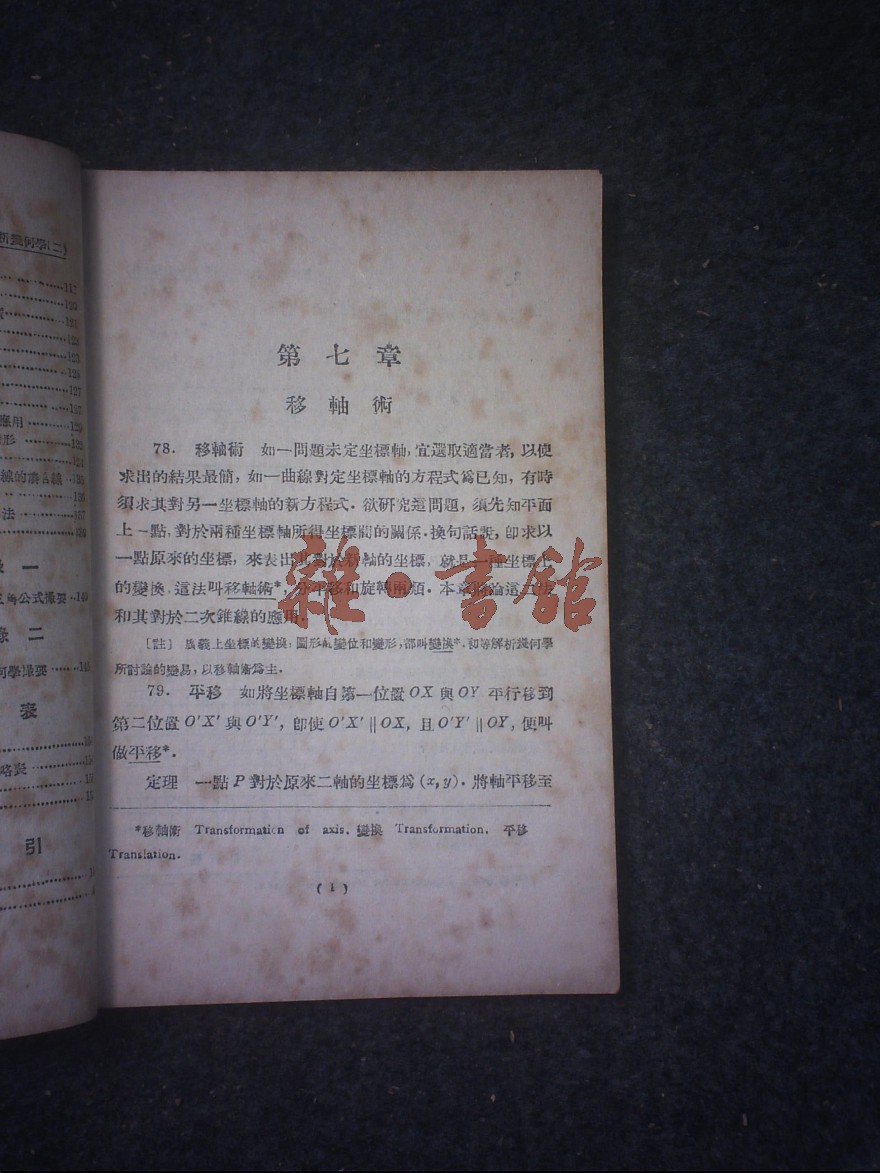 新幾何學(二)
117
123
123
126
127
應用
法
錄一
錄二
表
引
第七章
移軸術
78. 移軸術 如一問題未定坐標軸, 宜選取適當者, 以使
求出的結果最簡, 如一曲線對定坐標軸的方程式爲已知, 有時
須求其對另一坐標軸的新方程式. 欲研究這問題, 須先知平面
上一點, 對於兩種坐標軸所得坐標間的關係. 換句話說, 卽求以
一點原來的坐標, 來表出其對於新軸的坐標, 就是一種坐標上
的變換. 這法叫移軸術*, 分平移和旋轉兩類. 本章將論這二法
和其對於二次錐線的應用.
[註] 廣義上坐標的變換, 圖形的變位和變形, 都叫變換*. 初等解析幾何學
所討論的變易, 以移軸術爲主.
79. 平移 如將坐標軸自第一位置 OX 與 OY 平行移到
第二位置 O'X' 與 O'Y', 卽使 O'X' ∥ OX, 且 O'Y' ∥ OY, 便叫
做平移*.
定理 一點 P 對於原來二軸的坐標爲 (x, y). 將軸平移至
*移軸術 Transformation of axis. 變換 Transformation. 平移
Translation.
(1)
雜·書館